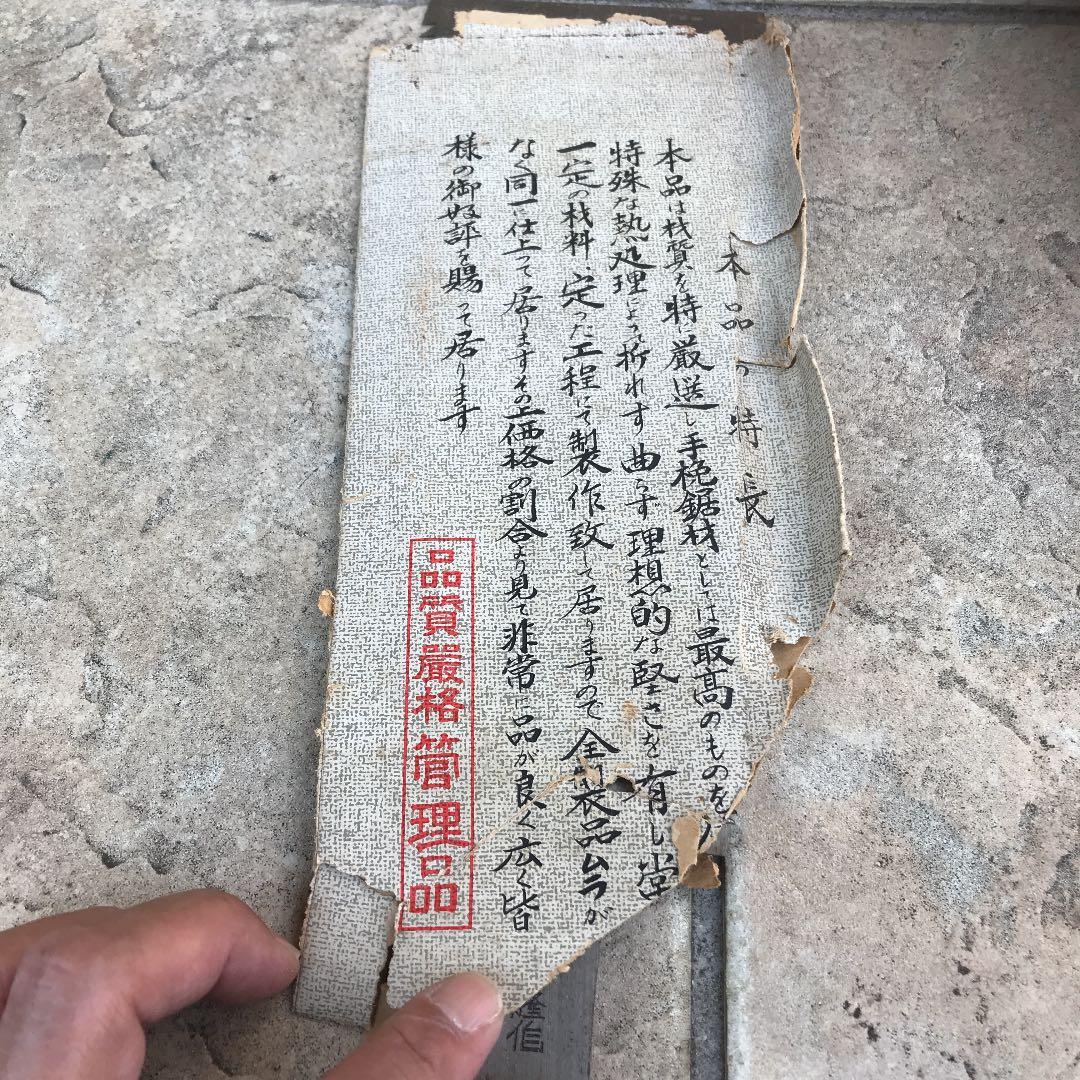 本品の特長
本品は材質を特に厳選し手挽鋸材としては最高のものを
特殊な熱処理によって折れず曲らず理想的な堅さを有し
一定の材料、定った工程にて製作致して居りますので全製品ムラが
なく同一に仕上って居りますその上価格の割合より見て非常に品が良く広く皆
様の御好評を賜って居ります
品質嚴格管理品